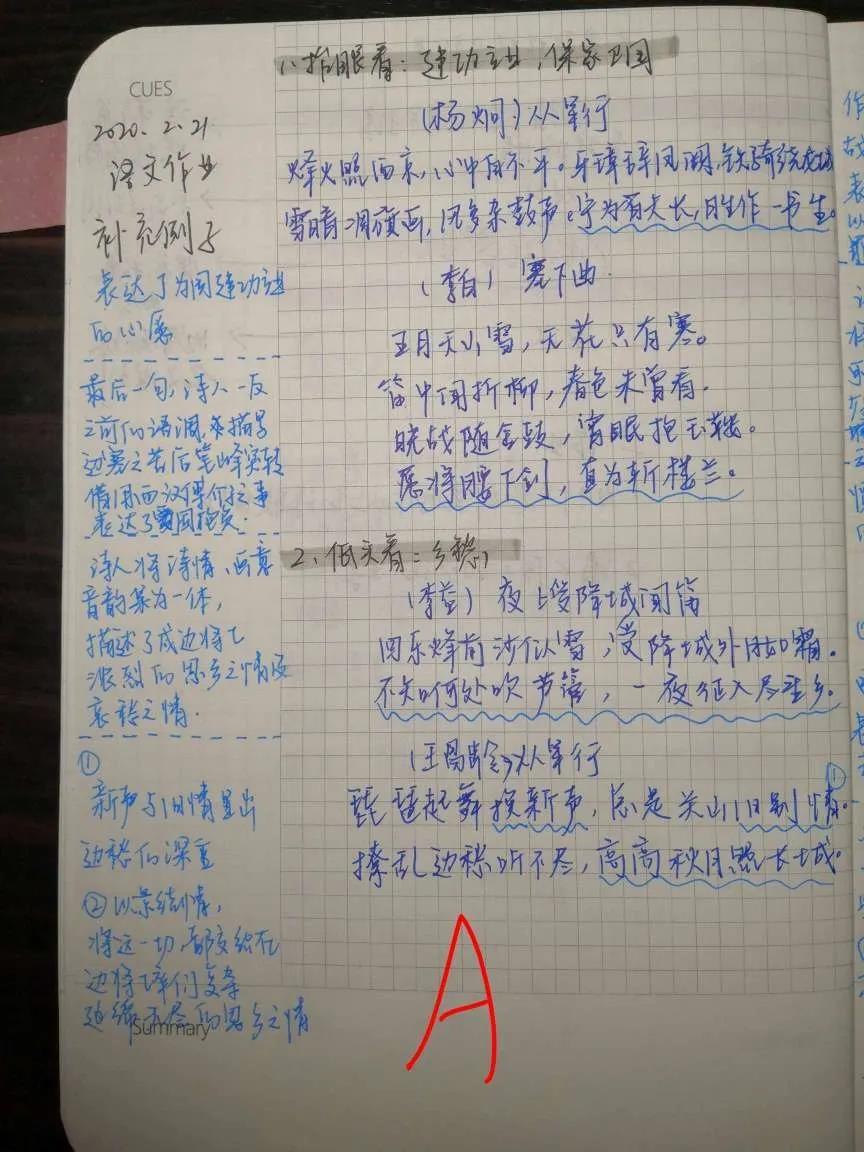 CUES
2020.2.21
语文作业
补充例子
表达了为国建功立业
的心愿
最后一句,诗人一反
之前的语调,在描写
边塞之苦后笔峰突转
借用西汉傅介子事
表达了
诗人将诗情、画意
音韵集为一体,
描述了戍边将士
浓烈的思乡之情及
哀愁之情.
①
新声与旧情显出
边愁的深重
②以景结情,
将这一切,都交给在
边将士们复杂
无尽的思乡之情
Summary
1、抬眼看:建功立业,保家卫国
(杨炯)从军行
烽火照西京,心中自不平。牙璋辞凤阙,铁骑绕龙城
雪暗凋旗画,风多杂鼓声。宁为百夫长,胜作一书生。
(李白)塞下曲.
五月天山雪,无花只有寒。
笛中闻折柳,春色未曾看.
晓战随金鼓,宵眠抱玉鞍。
愿将腰下剑,直为斩楼兰。
2、低头看:乡愁
(李益)夜上受降城闻笛
回乐烽前沙似雪,受降城外月如霜.
不知何处吹芦管,一夜征人尽望乡.
(王昌龄)从军行
琵琶起舞换新声,总是关山旧别情。①
撩乱边愁听不尽,高高秋月照长城。
A